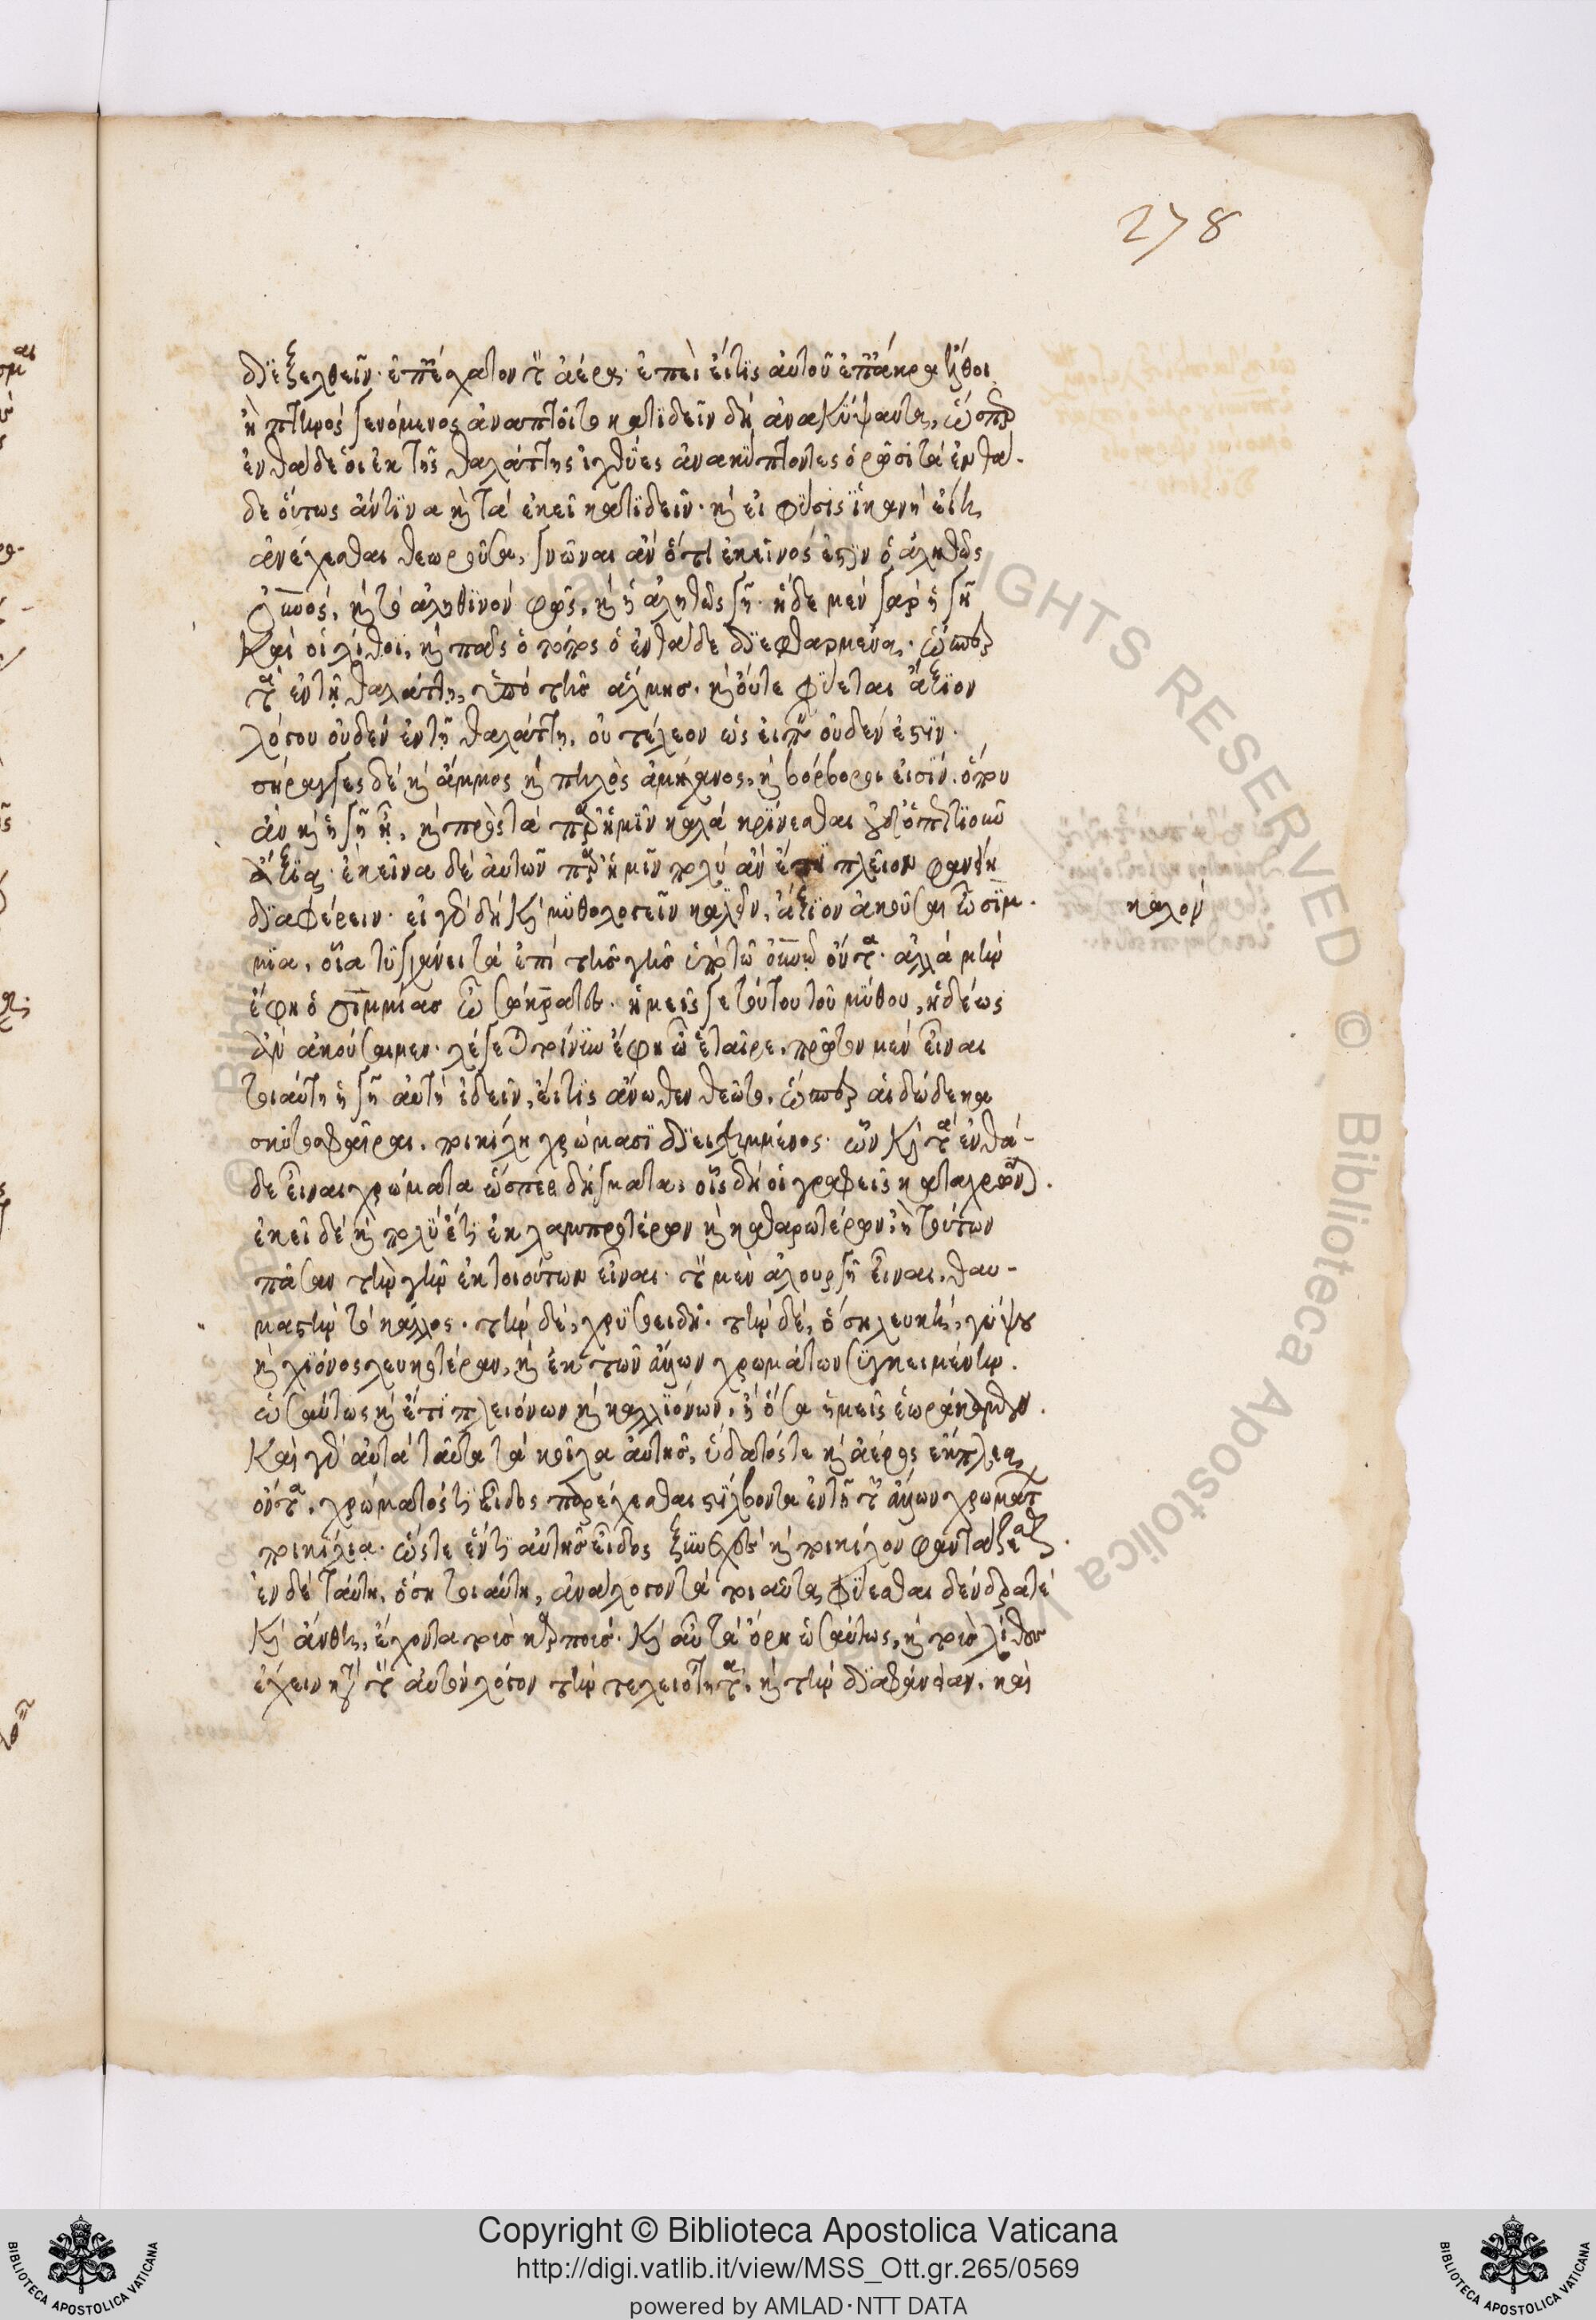 278
διεξελθεῖν ἐπ' ἔσχατον τὸν ἀέρα· ἐπεὶ εἴ τις αὐτοῦ ἐπ' ἄκρα ἔλθοι
ἢ πτηνὸς γενόμενος ἀνάπτοιτο κατιδεῖν δὴ ἀνακύψαντα, ὥσπερ
ἐνθάδε οἱ ἐκ τῆς θαλάττης ἰχθύες ἀνακύπτοντες ὁρῶσι τὰ ἐνθά-
δε οὕτως ἄν τινα καὶ τὰ ἐκεῖ κατιδεῖν· καὶ εἰ φύσις ἱκανὴ εἴη
ἀνέχεσθαι θεωροῦσα, γνῶναι ἂν ὅτι ἐκεῖνός ἐστιν ὁ ἀληθῶς
οὐνος, καὶ τὸ ἀληθινὸν φῶς, καὶ ἡ ἀληθῶς γῆ· ἥδε μὲν γὰρ ἡ γῆ
Καὶ οἱ λίθοι, καὶ πᾶς ὁ τόπος ὁ ἐνθάδε διεφθαρμένα· ὥσπερ
τὰ ἐν τῇ θαλάττῃ, ὑπὸ τῆς ἅλμης. καὶ οὔτε φύεται ἄξιον
λόγου οὐδὲν ἐν τῇ θαλάττῃ, οὐ τέλεον ὡς εἰπεῖν οὐδέν ἐστιν.
σήραγγες δὲ καὶ ἄμμος καὶ πηλὸς ἀμήχανος, καὶ βόρβοροι εἰσίν. ὅπου
ἂν καὶ ἡ γῆ ᾖ, καὶ πρὸς τὰ παρ' ἡμῖν καλὰ κρίνεσθαι οὐδ' ὁπωστιοῦν
ἄξια· ἐκεῖνα δὲ αὐτῶν παρ' ἡμῖν πολὺ ἂν ἔτι πλεῖον φανείη
διαφέρειν· εἰ γὰρ δὴ καὶ μυθολογεῖν καλὸν, ἄξιον ἀκοῦσαι ὦ σιμ-
καλὸν
μία, οἷα τυγχάνει τὰ ἐπὶ τῆς γῆς ὑπὸ τῷ οὐνῷ ὄντα· ἀλλὰ μὴν
ἔφη ὁ σιμμίας ὦ σώκρατες· ἡμεῖς γε τούτου τοῦ μύθου, ἡδέως
ἂν ἀκούσαιμεν· λέγεται τοίνυν ἔφη ὦ ἑταῖρε, πρῶτον μὲν εἶναι
τοιαύτη ἡ γῆ αὐτὴ ἰδεῖν, εἴ τις ἄνωθεν θεῷτο, ὥσπερ αἱ δώδεκα
σκυτοσφαῖραι, ποικίλη χρώμασι διειλημμένος· ὧν καὶ τὰ ἐνθά-
δε εἶναι χρώματα ὥσπερ δείγματα, οἷς δὴ οἱ γραφεῖς καταχρῶνται.
ἐκεῖ δὲ καὶ πολὺ ἔτι ἐκ λαμπροτέρων καὶ καθαρωτέρων, ἢ τούτων
πᾶσαν τὴν γῆν ἐκ τοιούτων εἶναι· τὴν μὲν ἁλουργῆ εἶναι, θαυ-
μαστὴν τὸ κάλλος· τὴν δὲ, χρυσοειδῆ· τὴν δὲ, ὅση λευκὴ, γύψου
καὶ χιόνος λευκοτέραν, καὶ ἐκ τῶν ἄλλων χρωμάτων συγκειμένην.
ὡσαύτως καὶ ἔτι πλειόνων καὶ καλλιόνων, ἢ ὅσα ἡμεῖς ἑωράκαμεν.
Καὶ γὰρ αὐτὰ ταῦτα τὰ κοῖλα αὐτῆς, ὕδατός τε καὶ ἀέρος ἔκπλεα
ὄντα, χρώματός τι εἶδος παρέχεσθαι στίλβοντα ἐν τῇ τῶν ἄλλων χρωμάτων
ποικιλίᾳ· ὥστε ἕν τι αὐτῆς εἶδος ξυνεχὲς καὶ ποικίλον φαντάζεσθαι.
ἐν δὲ ταύτῃ, ὅση τοιαύτη, ἀνάλογον τὰ τοιαῦτα φύεσθαι δένδρα τὲ
καὶ ἄνθη, ἔχοντα τοὺς καρπούς· καὶ αὖ τὰ ὄρη ὡσαύτως, καὶ τοὺς λίθους
ἔχειν κατὰ τὸν αὐτὸν λόγον τήν τε λειότητα, καὶ τὴν διαφάνειαν, καὶ
Copyright © Biblioteca Apostolica Vaticana
http://digi.vatlib.it/view/MSS_Ott.gr.265/0569
powered by AMLAD·NTT DATA